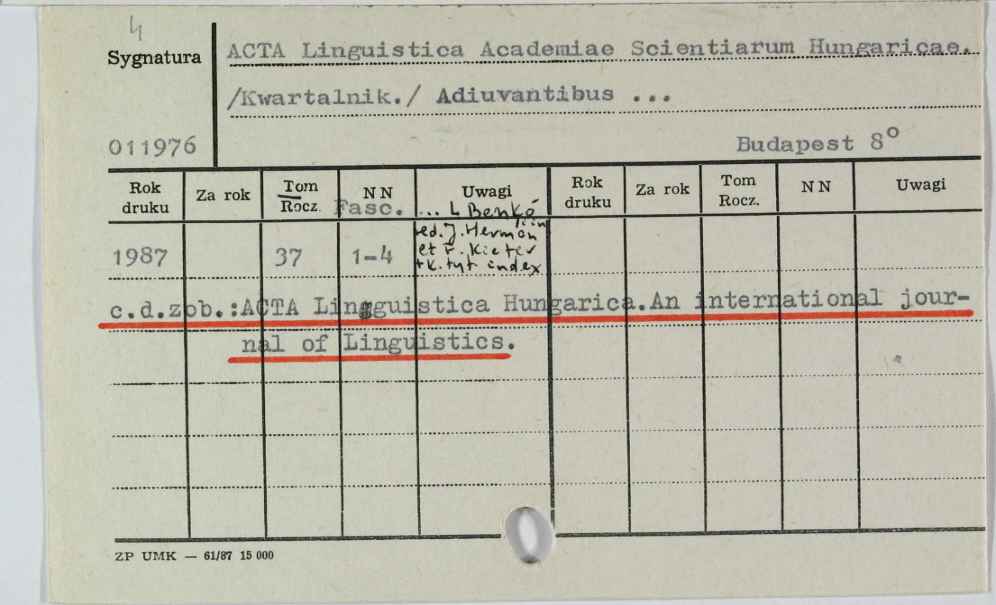 4
Sygnatura
ACTA Linguistica Academiae Scientiarum Hungaricae.
/Kwartalnik./ Adiuvantibus ...
011976
Budapest 8°
Rok druku Za rok Tom Rocz. NN Fasc. Uwagi Rok druku Za rok Tom Rocz. NN Uwagi
... L Benkő
red. J. Herman
1987 37 1-4 et F. Kiefer
+k. tyt index
c.d.zob.:ACTA Lingguistica Hungarica.An international jour-
nal of Linguistics.
ZP UMK — 61/87 15 000